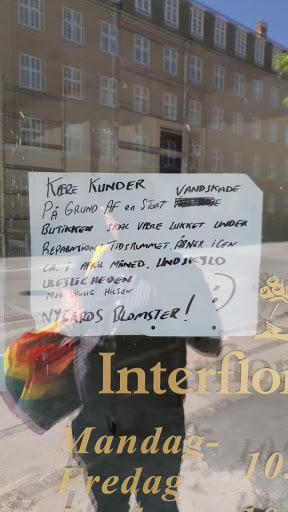 KÆRE KUNDER
PÅ GRUND AF EN STORT VANDSKADE
BUTIKKEN SKAL VÆRE LUKKET UNDER
REPARATIONS TIDSRUMMET. ÅBNER IGEN
CA. I APRIL MÅNED. UNDSKYLD
ULEJLIGHEDEN
MED VENLIG HILSEN
NYGÅRDS BLOMSTER!
Interflor
Mandag-
Fredag 10.